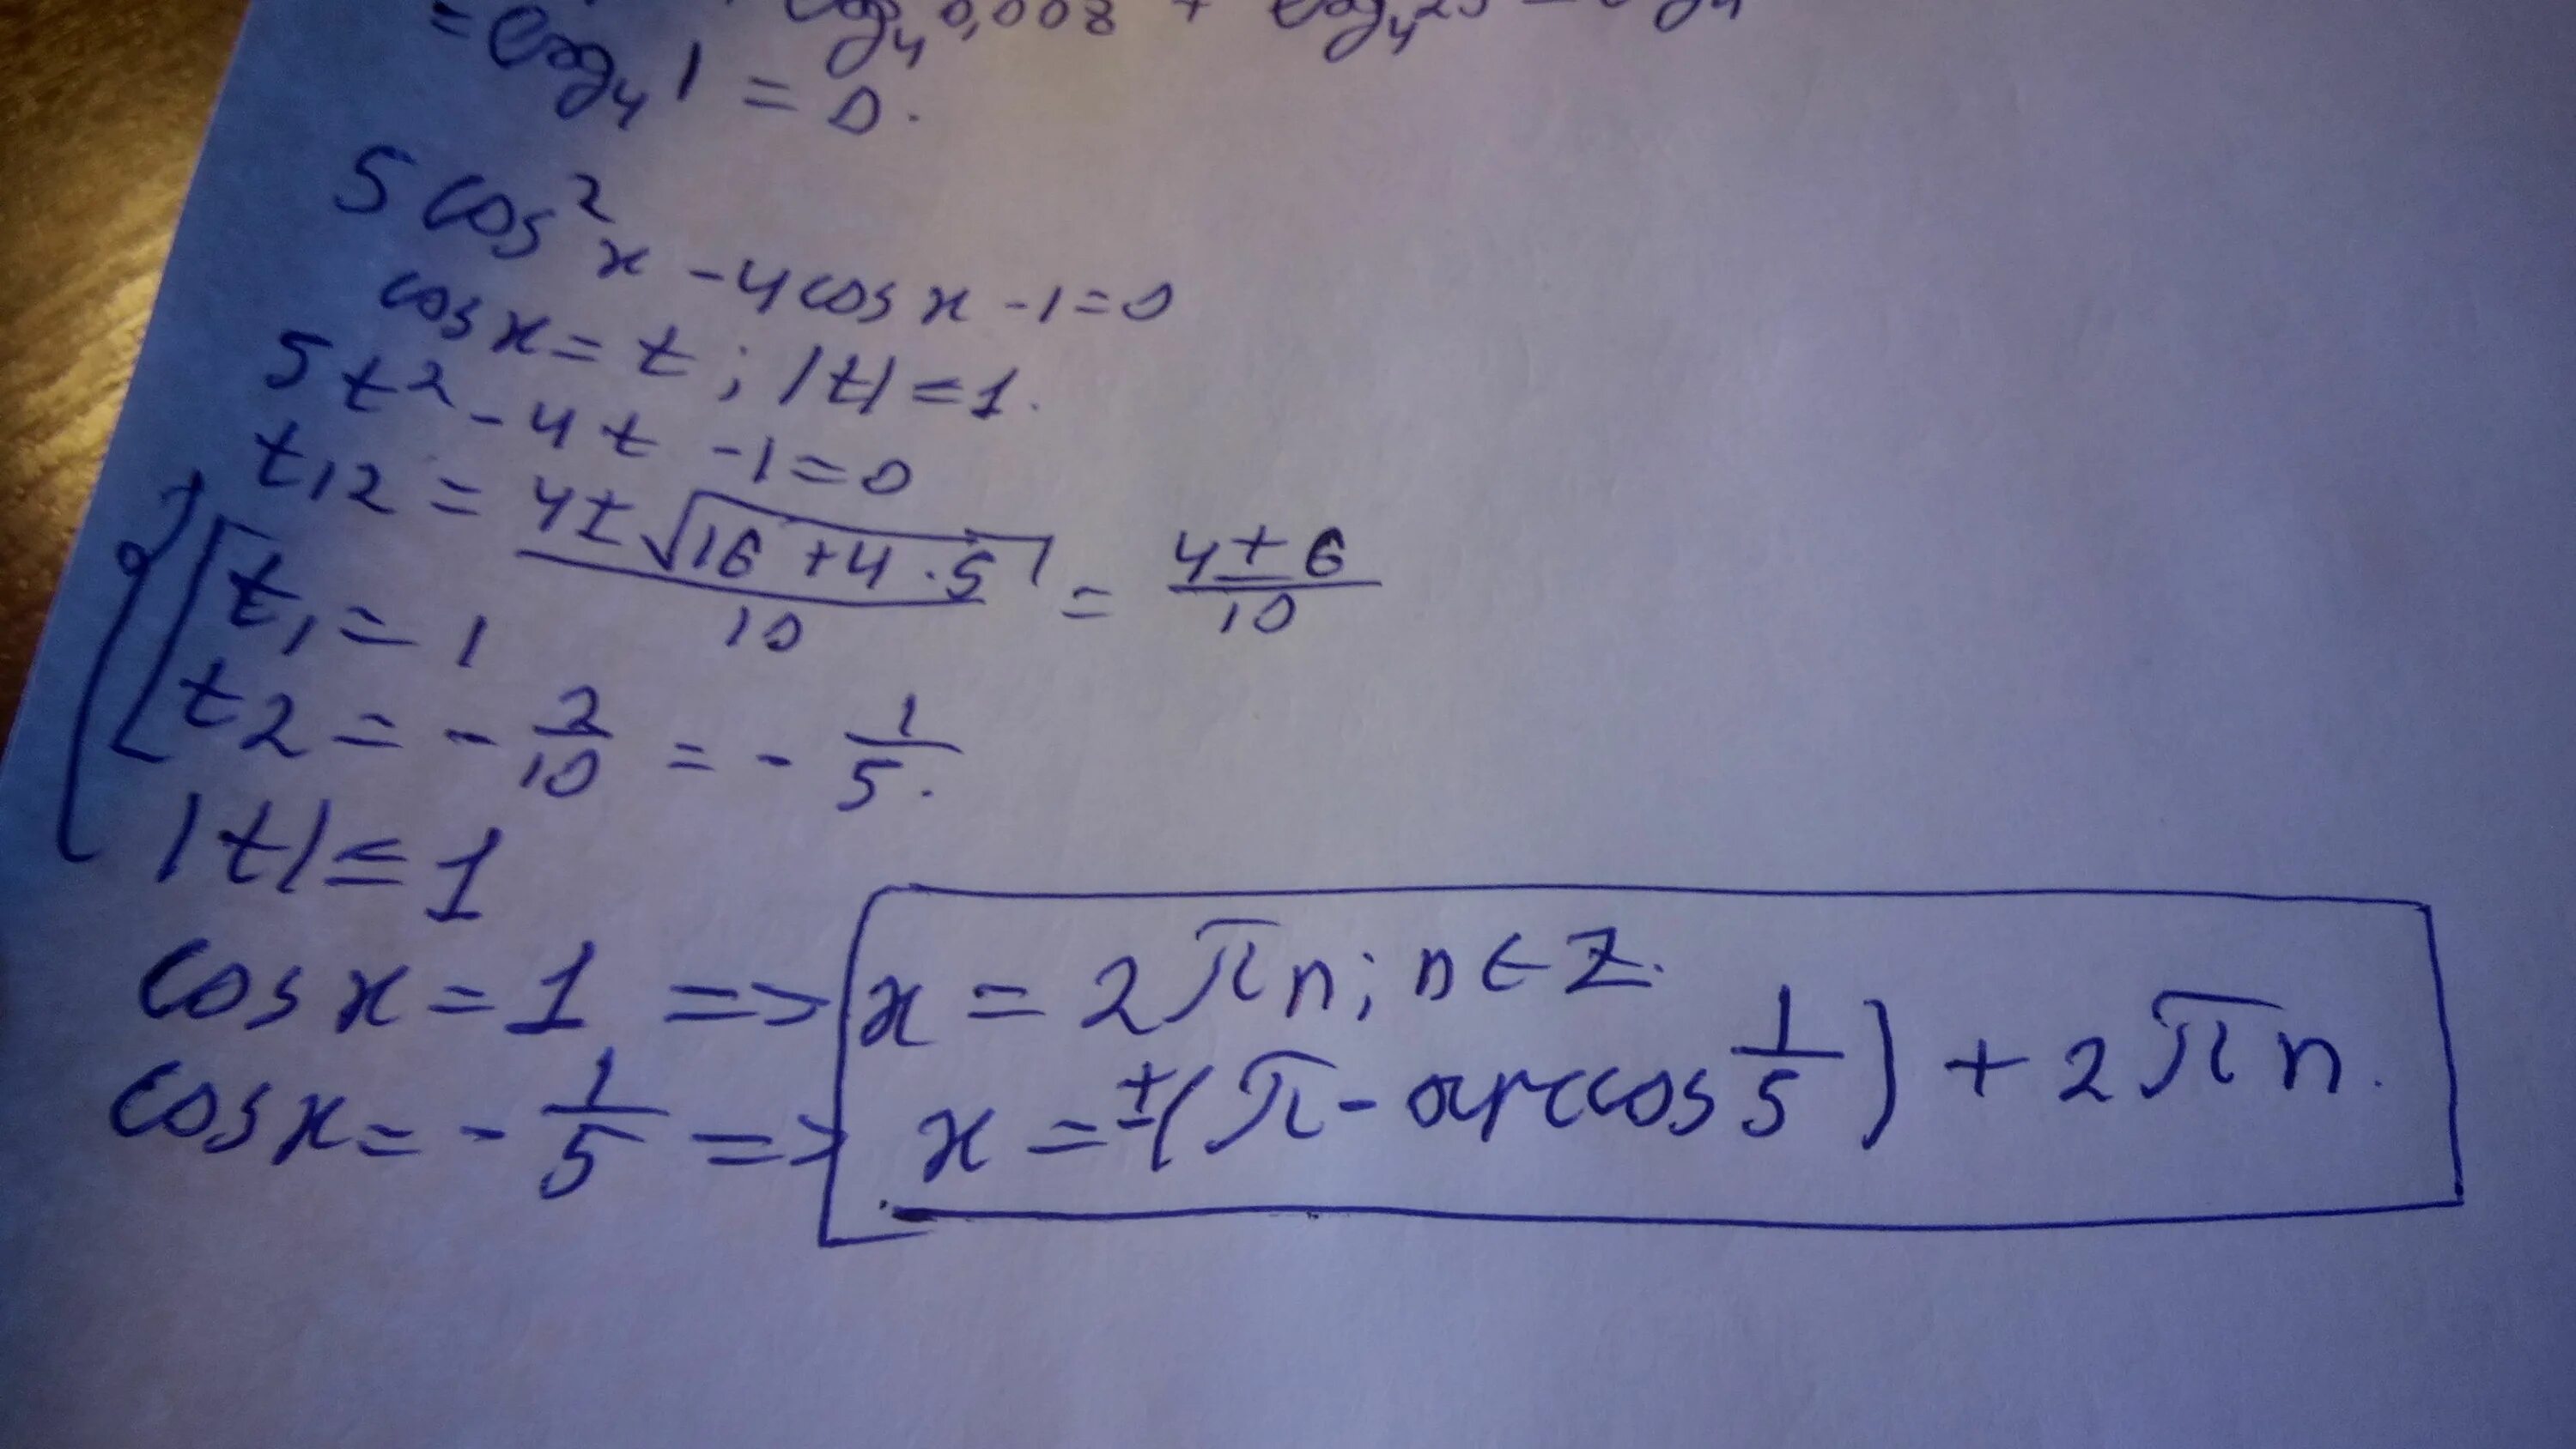 log₄ 0,008 + log₄ 25
= log₄ 1 = 0.
5 cos² x - 4 cos x - 1 = 0
cos x = t ; |t| = 1.
5t² - 4t - 1 = 0
t₁₂ = (4 ± √(16 + 4 · 5))/10 = (4 ± 6)/10
t₁ = 1
t₂ = - 2/10 = - 1/5.
|t| ≤ 1
cos x = 1 => x = 2πn; n ∈ Z.
cos x = - 1/5 => x = ±(π - arccos 1/5) + 2πn.